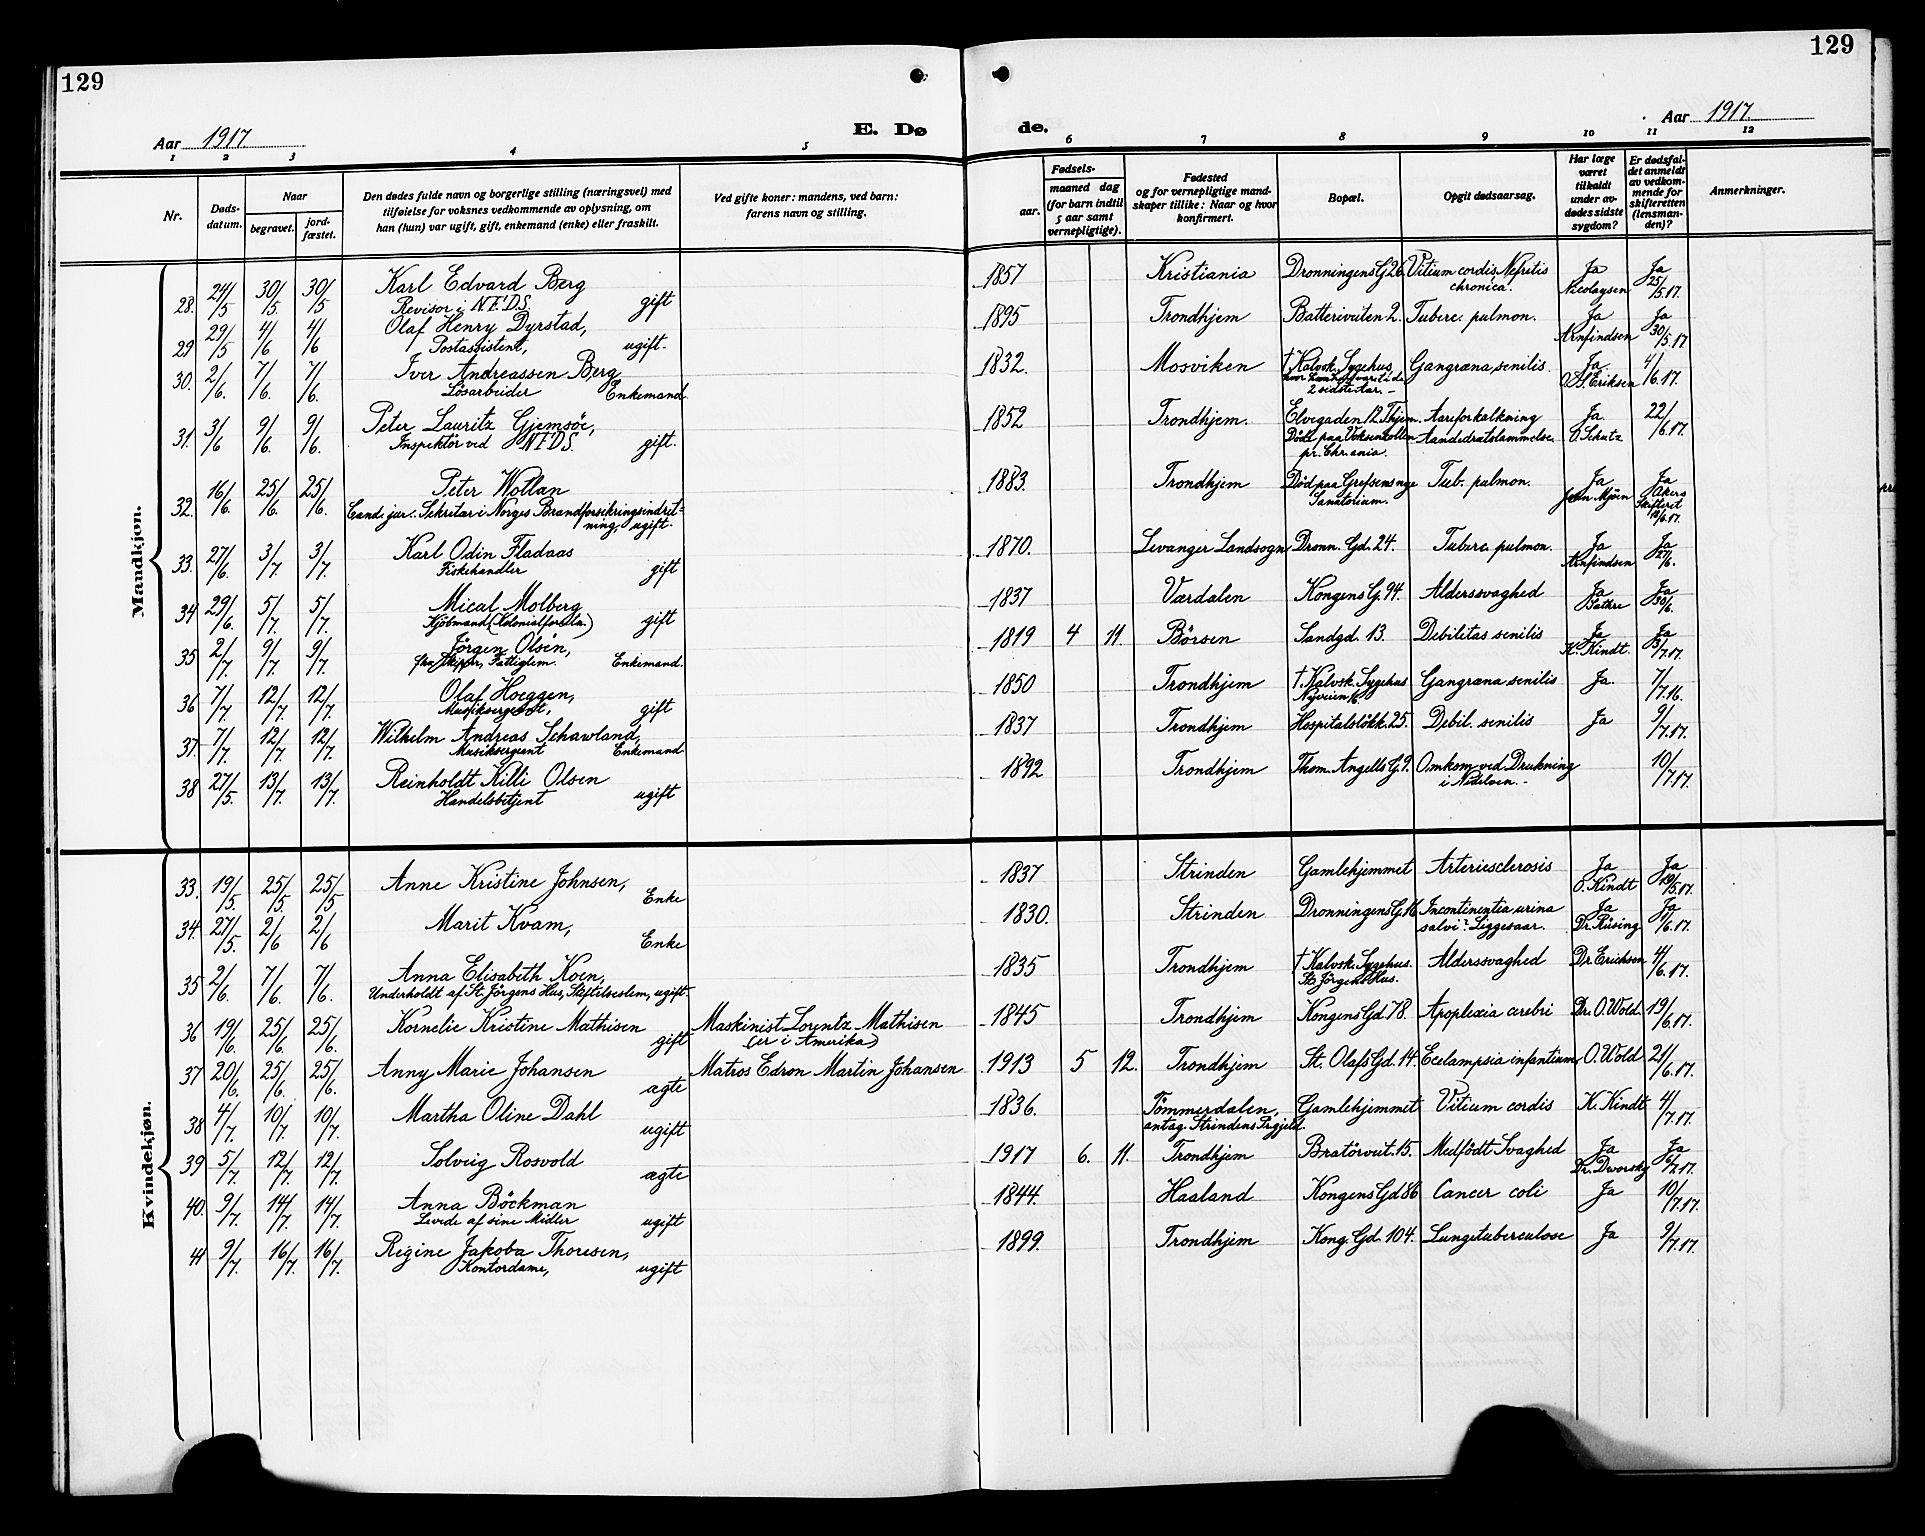 129
129
Aar 1917
E. Dø
de.
Aar 1917
1 2 3 4 5
6 7 8 9 10 11 12
Nr.
Døds-
datum.
Naar
begravet.
jord-
fæstet.
Den dødes fulde navn og borgerlige stilling (næringsvei) med
tilføielse for voksnes vedkommende av oplysning, om
han (hun) var ugift, gift, enkemand (enke) eller fraskilt.
Ved gifte koner: mandens, ved barn:
farens navn og stilling.
Fødsels-
aar.
maaned dag
(for barn indtil
5 aar samt
vernepligtige).
Fødested
og for vernepligtige mand-
skaper tillike: Naar og hvor
konfirmert.
Bopæl.
Opgit dødsaarsag.
Har læge
været
tilkaldt
under av-
dødes sidste
sygdom?
Er dødsfal-
det anmeldt
av vedkom-
mende for
skifteretten
(lensman-
den)?
Anmerkninger.
Mandkjøn.
28. 24/5 30/5. 30/5 Karl Edvard Berg 1857 Kristiania Dronningens G 26. Vitium cordis, Nefritis Ja Ja
Revisor i N.F.D.S. gift chronica. Nicolaysen 25/5.17.
29 29/5 4/6 4/6 Olaf Henry Dyrstad, 1895 Trondhjem Batteriveiten 2. Tuberc. pulmon. Ja Ja
Postassistent, ugift. Arnfindsen 30/5.17
30. 2/6. 7/6. 7/6. Iver Andreassen Berg 1832. Mosviken † Kalvsk. Sygehus, Gangræna senilis. Ja 4/6.17.
Løsarbeider Enkemand. 2 sidste Aar. - Eriksen
31. 3/6 9/6. 9/6. Peter Lauritz Gjemsöe, 1852 Trondhjem. Elvegaden 12 Thjem. Aareforkalkning Ja 22/6.17.
Inspektör ved N.F.D.S. gift. Död paa Voksenkollen Aandedrætslammelse. O. Schutz
pr. Chr.ania.
32. 16/6. 25/6. 25/6. Peter Wollan 1883. Trondhjem Död paa Grefsens nye Tub. pulmon. Ja Ja
Cand. jur. Sekretær i Norges Brandforsikringsindret- Sanatorium. Mjøen Akers
ning, ugift. Skifteret
18/6.17.
33. 27/6. 3/7. 3/7. Karl Odin Fladaas 1870. Levanger Landsogn Dronn. Gd. 24. Tuberc. pulmon. Ja Ja
Fiskehandler gift Arnfindsen 27/6.
34 29/6. 5/7. 5/7. Mical Molberg 1837 Værdalen Kongens G. 94. Alderssvaghed Ja Ja
Kjöbmand (Kolonialforretn.) gift 30/6.
35 2/7. 9/7. 9/7. Jörgen Olsen, 1819 4 11. Börsen Sandgd. 13. Debilitas senilis Ja Ja
fhv. Skipper, Fattiglem. Enkemand. K. Kindt. 3/7.17.
36 7/7. 12/7. 12/7. Olaf Hoeggen, 1850 Trondhjem †. Kalvsk. Sygehus Gangræna senilis Ja. 7/7.16.
Musiksergeant, gift Nyveien 6.
37. 7/7. 12/7. 12/7. Wilhelm Andreas Schawland, 1837 Trondhjem Hospitalslökk. 25. Debil. senilis Ja 9/7.17.
Musiksergeant Enkemand
38 27/5. 13/7. 13/7. Reinholdt Killi Olsen 1892 Trondhjem Thom. Angells G. 9. Omkom ved Drukning 10/7.17.
Handelsbetjent ugift i Nidelven. -
Kvindekjøn.
33. 19/5. 25/5 25/5 Anne Kristine Johnsen, 1837 Strinden Gamlehjemmet Arteriesclerosis Ja Ja
Enke O. Kindt 19/5.17.
34. 27/5. 2/6 2/6 Marit Kvam, 1830. Strinden Dronningens G. 16. Incontinentia urina Ja Ja
Enke salvi? Liggesaar. Dr. Rüsing 1/6.17.
35 2/6. 7/6. 7/6. Anna Elisabeth Koen, 1835 Trondhjem † Kalvsk. Sygehus. Alderssvaghed Dr Erichsen 4/6.17.
Underholdt af St. Jörgens Hus, Stiftelseslem, ugift. St. Jörgens Hus.
36 19/6. 25/6. 25/6. Kornelie Kristine Mathisen Maskinist Lorentz Mathisen 1845 Trondhjem Kongens Gd 78. Apoplexia cerebri Dr. O. Wold. 19/6.17.
gift (er i Amerika)
37 20/6. 25/6. 25/6. Anny Marie Johansen Matros Edron Martin Johansen 1913 5 12. Trondhjem St. Olafs Gd. 14. Ecclampsia infantium O. Wold 21/6.17.
ægte
38 4/7. 10/7. 10/7. Martha Oline Dahl 1836. Tömmerdalen, Gamlehjemmet Vitium cordis K. Kindt 4/7.17.
ugift antag. Strindens Prgjeld.
39 5/7. 12/7. 12/7. Solveig Rosvold 1917 6. 11. Trondhjem Bratörveit. 15. Medfödt Svaghed Ja Ja
ægte Dr. Dworsky 6/7.17.
40. 9/7. 14/7. 14/7. Anna Böckman 1844. Haaland Kongens Gd 86 Cancer coli Ja 10/7.17.
Levede af sine Midler ugift
41 9/7. 16/7. 16/7. Regine Jakoba Thoresen, 1899. Trondhjem Kong. Gd. 104. Lungetuberculose Ja 9/7.17.
Kontordame, ugift